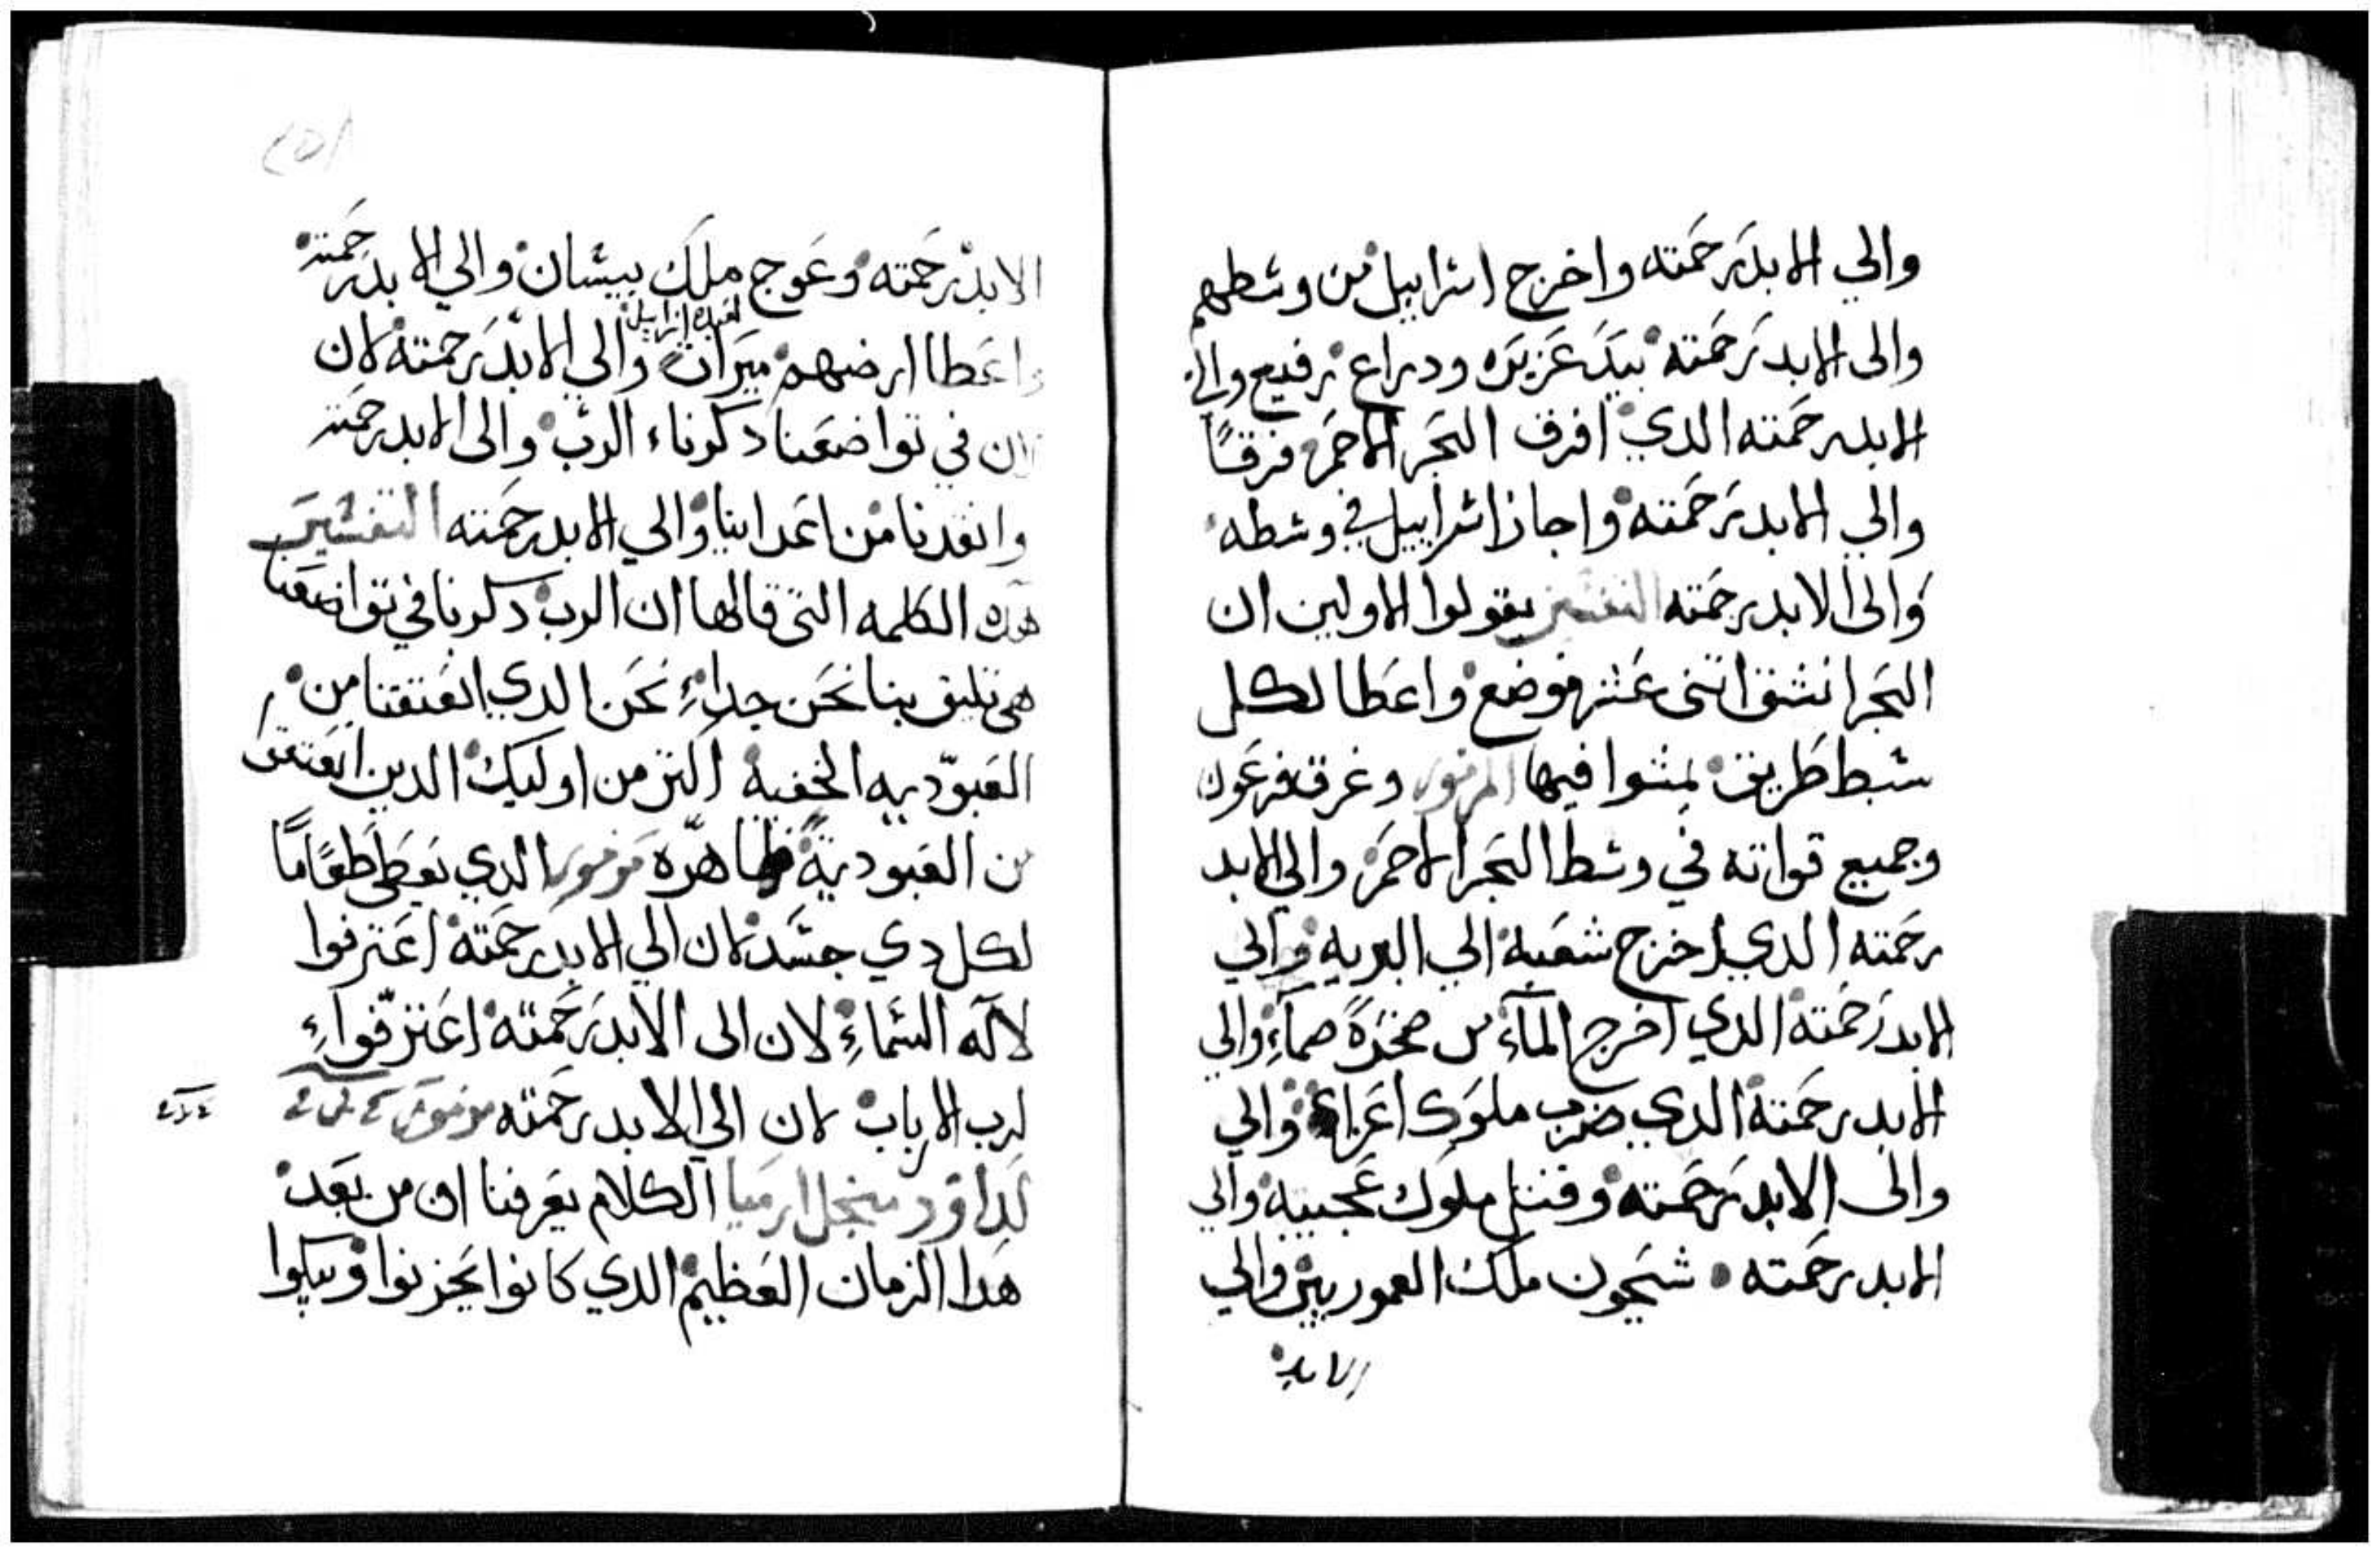 والي الابد رحمته واخرج اسراييل من وسطهم
والى الابد رحمته بيد عزيزه ودراع رفيع والى
الابد رحمته الدي افرق البحر الاحمر فرقًا
والي الابد رحمته واجاز اسراييل في وسطه
والى الابد رحمته التفسير يقولوا الاولين ان
البحر انشق اتنى عشر موضع واعطا لكل
سبط طريق يمشوا فيها المزمور وغرق فرعون
وجميع قواته في وسط البحر الاحمر والي الابد
رحمته الدي اخرج شعبه الي البريه والي
الابد رحمته الدي اخرج المآء من صخرة صمآء والي
الابد رحمته الدي ضرب ملوك اعزاء والي
والى الابد رحمته وقتل ملوك عجيبه والي
الابد رحمته سيحون ملك العموريين والي
الابد
الابد رحمته وعوج ملك بيسان والي الابد رحمته
لعبده اسراييل
واعطا ارضهم ميرات والي الابد رحمته لان
لان في تواضعنا دكرناء الرب والى الابد رحمته
وانقدنا من اعداينا والي الابد رحمته التفسير
هده الكلمه التى قالها ان الرب دكرنا في تواضعنا
هى تليق بنا نحن جداء نحن الدي انعتقنا من
العبوديه الخفيه اكتر من اوليك الدين انعتقوا
من العبودية ظاهره مزمور الدي يعطى طعامًا
لكل دي جسد لان الي الابد رحمته اعترفوا
لاله السماء لان الى الابد رحمته اعترفواء
لرب الارباب لان الي الابد رحمته مزمور
لداوود الكلام يعرفنا ان من بعد
هدا الزمان العظيم الدي كانوا يحزنوا ويبكوا